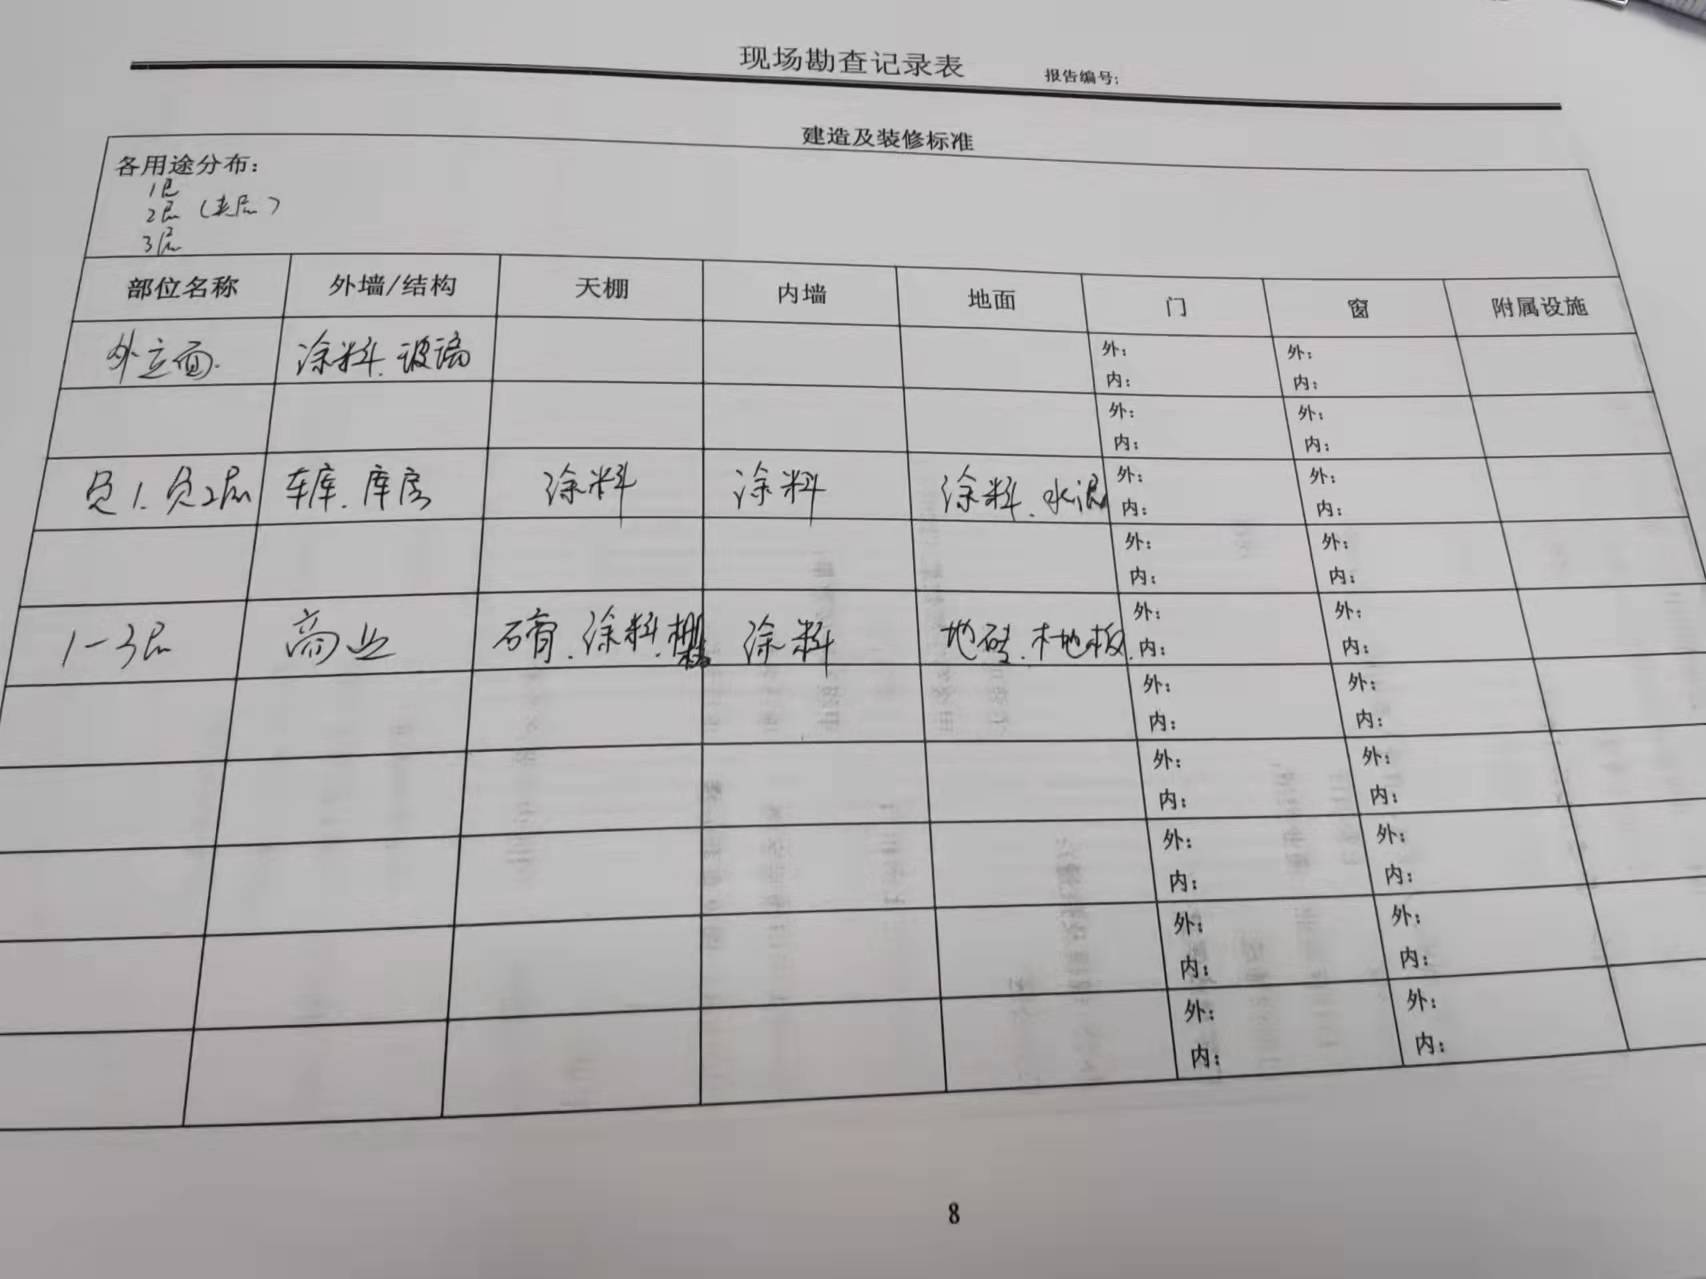 现场勘查记录表 报告编号:
建造及装修标准
各用途分布:
1层
2层 (夹层)
3层
部位名称 外墙/结构 天棚 内墙 地面 门 窗 附属设施
外立面. 涂料.玻璃 外: 外:
内: 内:
外: 外:
内: 内:
负1.负2层 车库.库房 涂料 涂料 涂料.水泥 外: 外:
内: 内:
外: 外:
内: 内:
1-3层 商业 石膏.涂料. 涂料 地砖.木地板. 外: 外:
内: 内:
外: 外:
内: 内:
外: 外:
内: 内:
外: 外:
内: 内:
外: 外:
内: 内:
外: 外:
内: 内:
8